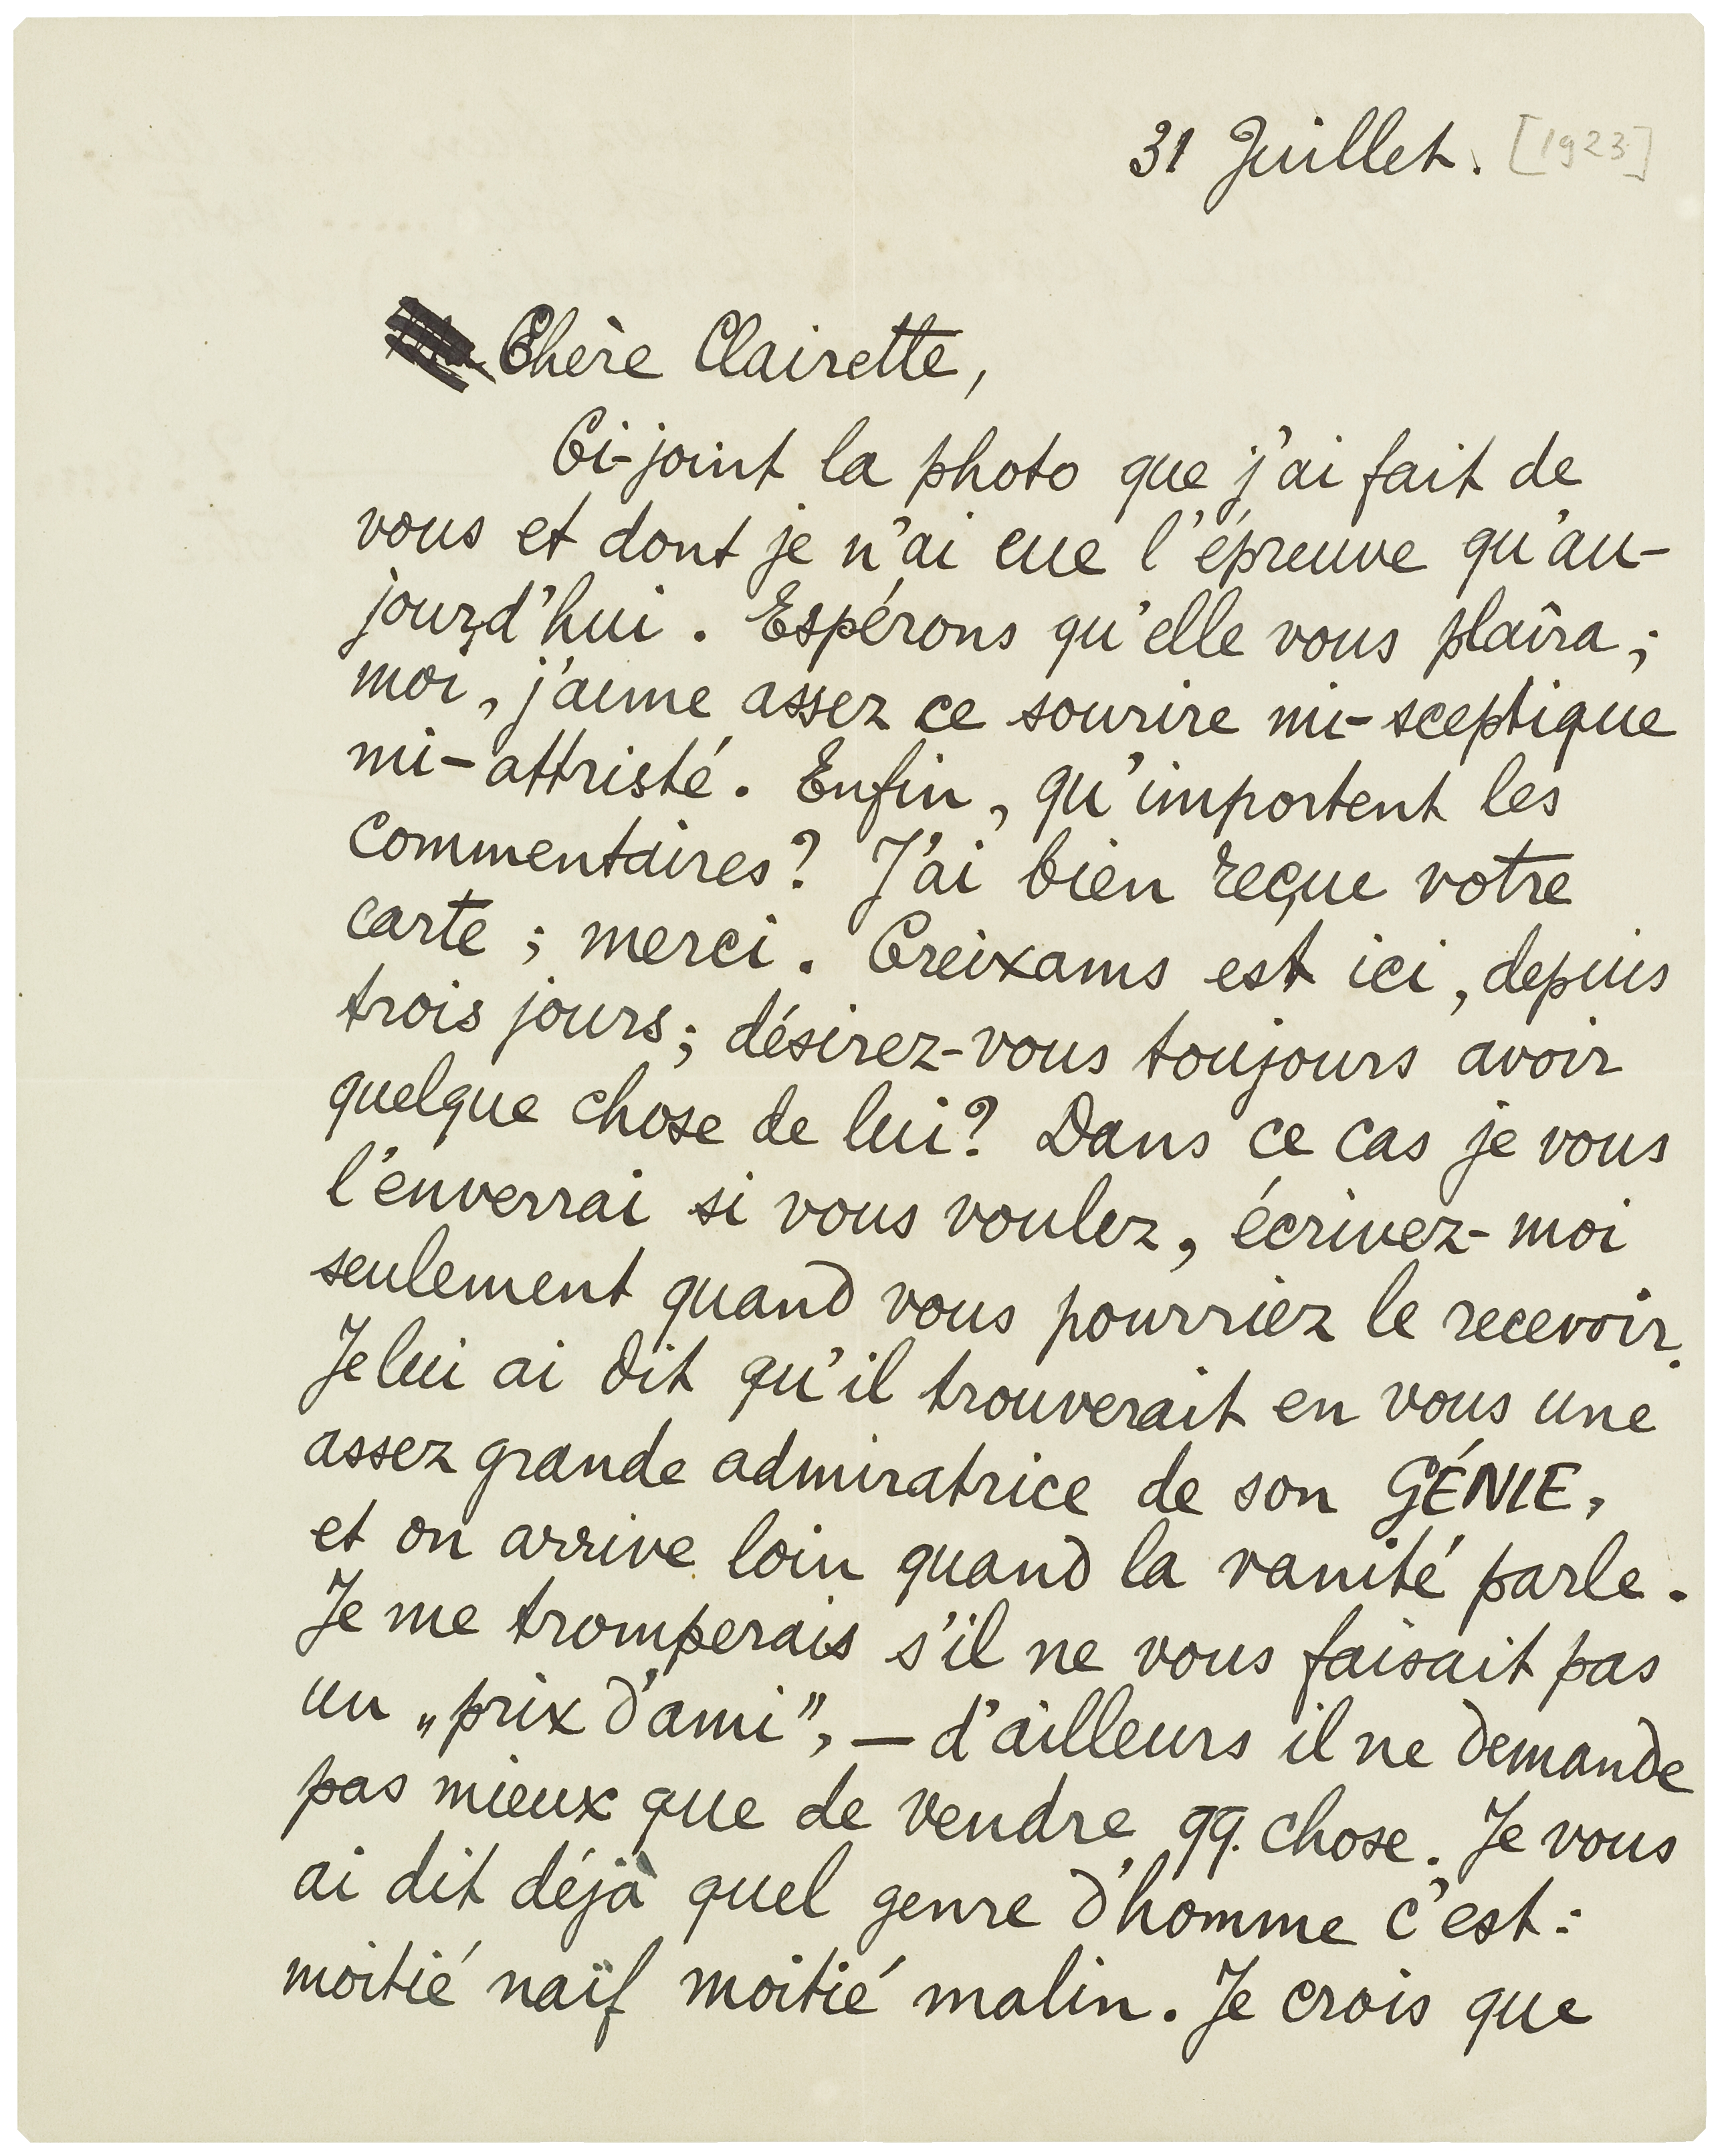 31 Juillet. [1923]
Chère Clairette,
Ci-joint la photo que j'ai fait de
vous et dont je n'ai eue l'épreuve qu'au-
jourd'hui. Espérons qu'elle vous plaîra;
moi, j'aime assez ce sourire mi-sceptique
mi-attristé. Enfin, qu'importent les
commentaires? J'ai bien reçue votre
carte; merci. Creixams est ici, depuis
trois jours; désirez-vous toujours avoir
quelque chose de lui? Dans ce cas je vous
l'enverrai si vous voulez, écrivez-moi
seulement quand vous pourriez le recevoir.
Je lui ai dit qu'il trouverait en vous une
assez grande admiratrice de son GÉNIE,
et on arrive loin quand la vanité parle.
Je me tromperais s'il ne vous faisait pas
un „prix d'ami”, — d'ailleurs il ne demande
pas mieux que de vendre qq. chose. Je vous
ai dit déjà quel genre d'homme c'est:
moitié naïf moitié malin. Je crois que